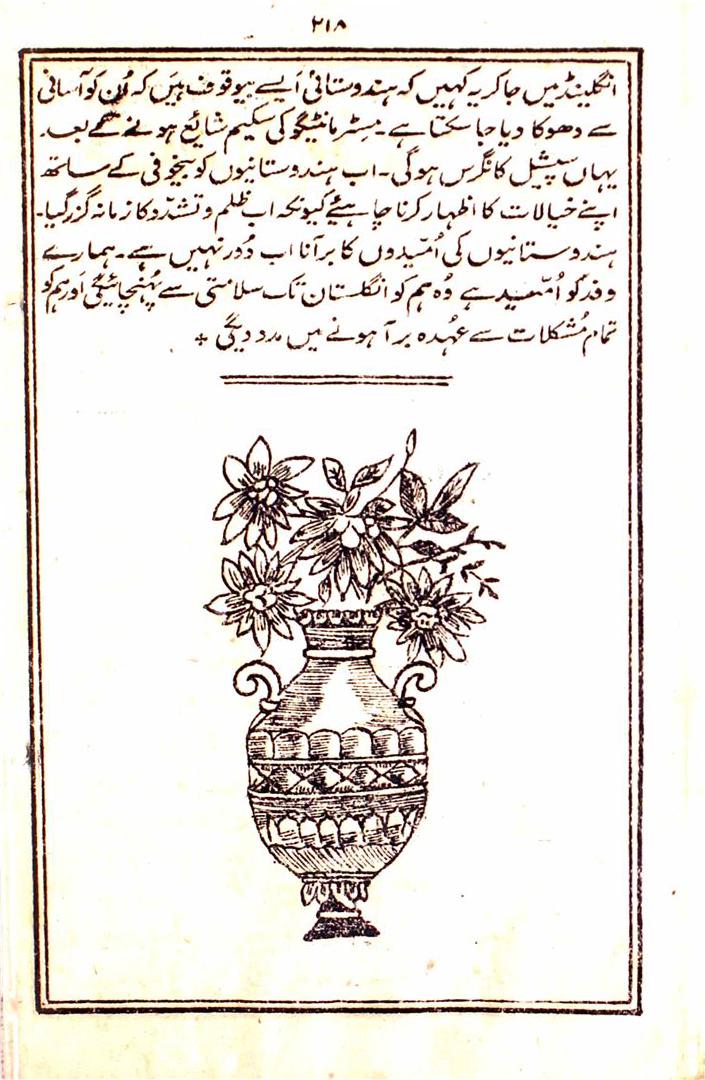 ۲۱۸
انگلینڈ میں جا کر یہ کہیں کہ ہندوستانی ایسے بیوقوف ہیں کہ اُن کو آسانی
سے دھوکا دیا جا سکتا ہے۔ مسٹر مانٹیگو کی سکیم شایع ہونے کے بعد۔
یہاں سپیشل کانگرس ہوگی۔ اب ہندوستانیوں کو بیخوفی کے ساتھ
اپنے خیالات کا اظہار کرنا چاہیئے کیونکہ اب ظلم و تشدّد کا زمانہ گزر گیا۔
ہندوستانیوں کی اُمّیدوں کا بر آنا اب دُور نہیں ہے۔ ہمارے
وفد کو اُمّید ہے وُہ ہم کو انگلستان تک سلامتی سے پہُنچائیگی اَور ہم کو
تمام مُشکلات سے عُہدہ برآ ہونے میں مدد دیگی ٭